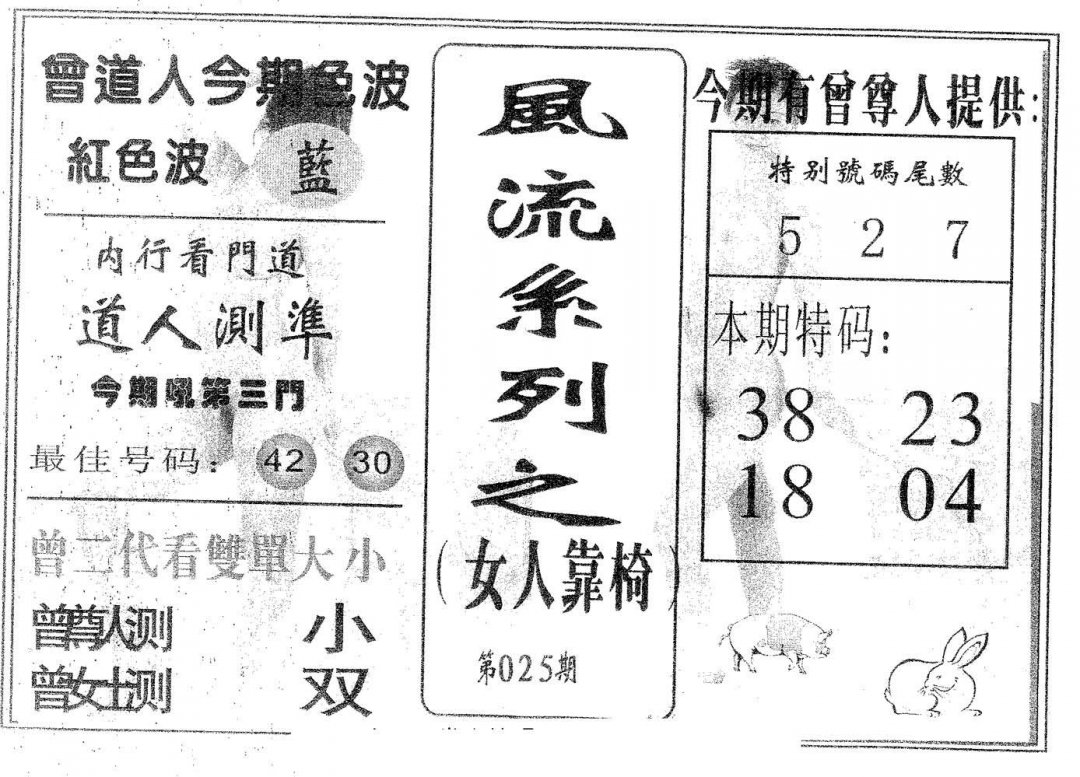 曾道人今期色波
紅色波 藍
内行看門道
道人測準
今期吼第三門
最佳号码：42 30
曾二代看雙單大小
曾尊人测 小
曾女士测 双
風流系列之
（女人靠椅）
第025期
今期有曾尊人提供：
特別號碼尾數
5 2 7
本期特码：
38 23
18 04